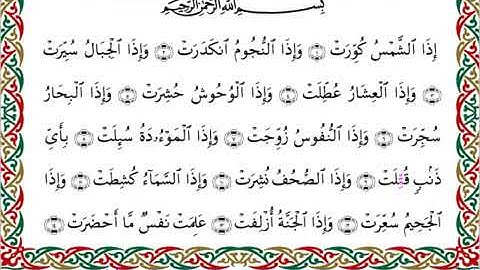 بِسْمِ ٱللَّهِ ٱلرَّحْمَٰنِ ٱلرَّحِيمِ
إِذَا ٱلشَّمْسُ كُوِّرَتْ ١ وَإِذَا ٱلنُّجُومُ ٱنكَدَرَتْ ٢ وَإِذَا ٱلْجِبَالُ سُيِّرَتْ
٣ وَإِذَا ٱلْعِشَارُ عُطِّلَتْ ٤ وَإِذَا ٱلْوُحُوشُ حُشِرَتْ ٥ وَإِذَا ٱلْبِحَارُ
سُجِّرَتْ ٦ وَإِذَا ٱلنُّفُوسُ زُوِّجَتْ ٧ وَإِذَا ٱلْمَوْءُۥدَةُ سُئِلَتْ ٨ بِأَيِّ
ذَنۢبٍ قُتِلَتْ ٩ وَإِذَا ٱلصُّحُفُ نُشِرَتْ ١٠ وَإِذَا ٱلسَّمَآءُ كُشِطَتْ ١١ وَإِذَا
ٱلْجَحِيمُ سُعِّرَتْ ١٢ وَإِذَا ٱلْجَنَّةُ أُزْلِفَتْ ١٣ عَلِمَتْ نَفْسٌ مَّآ أَحْضَرَتْ ١٤